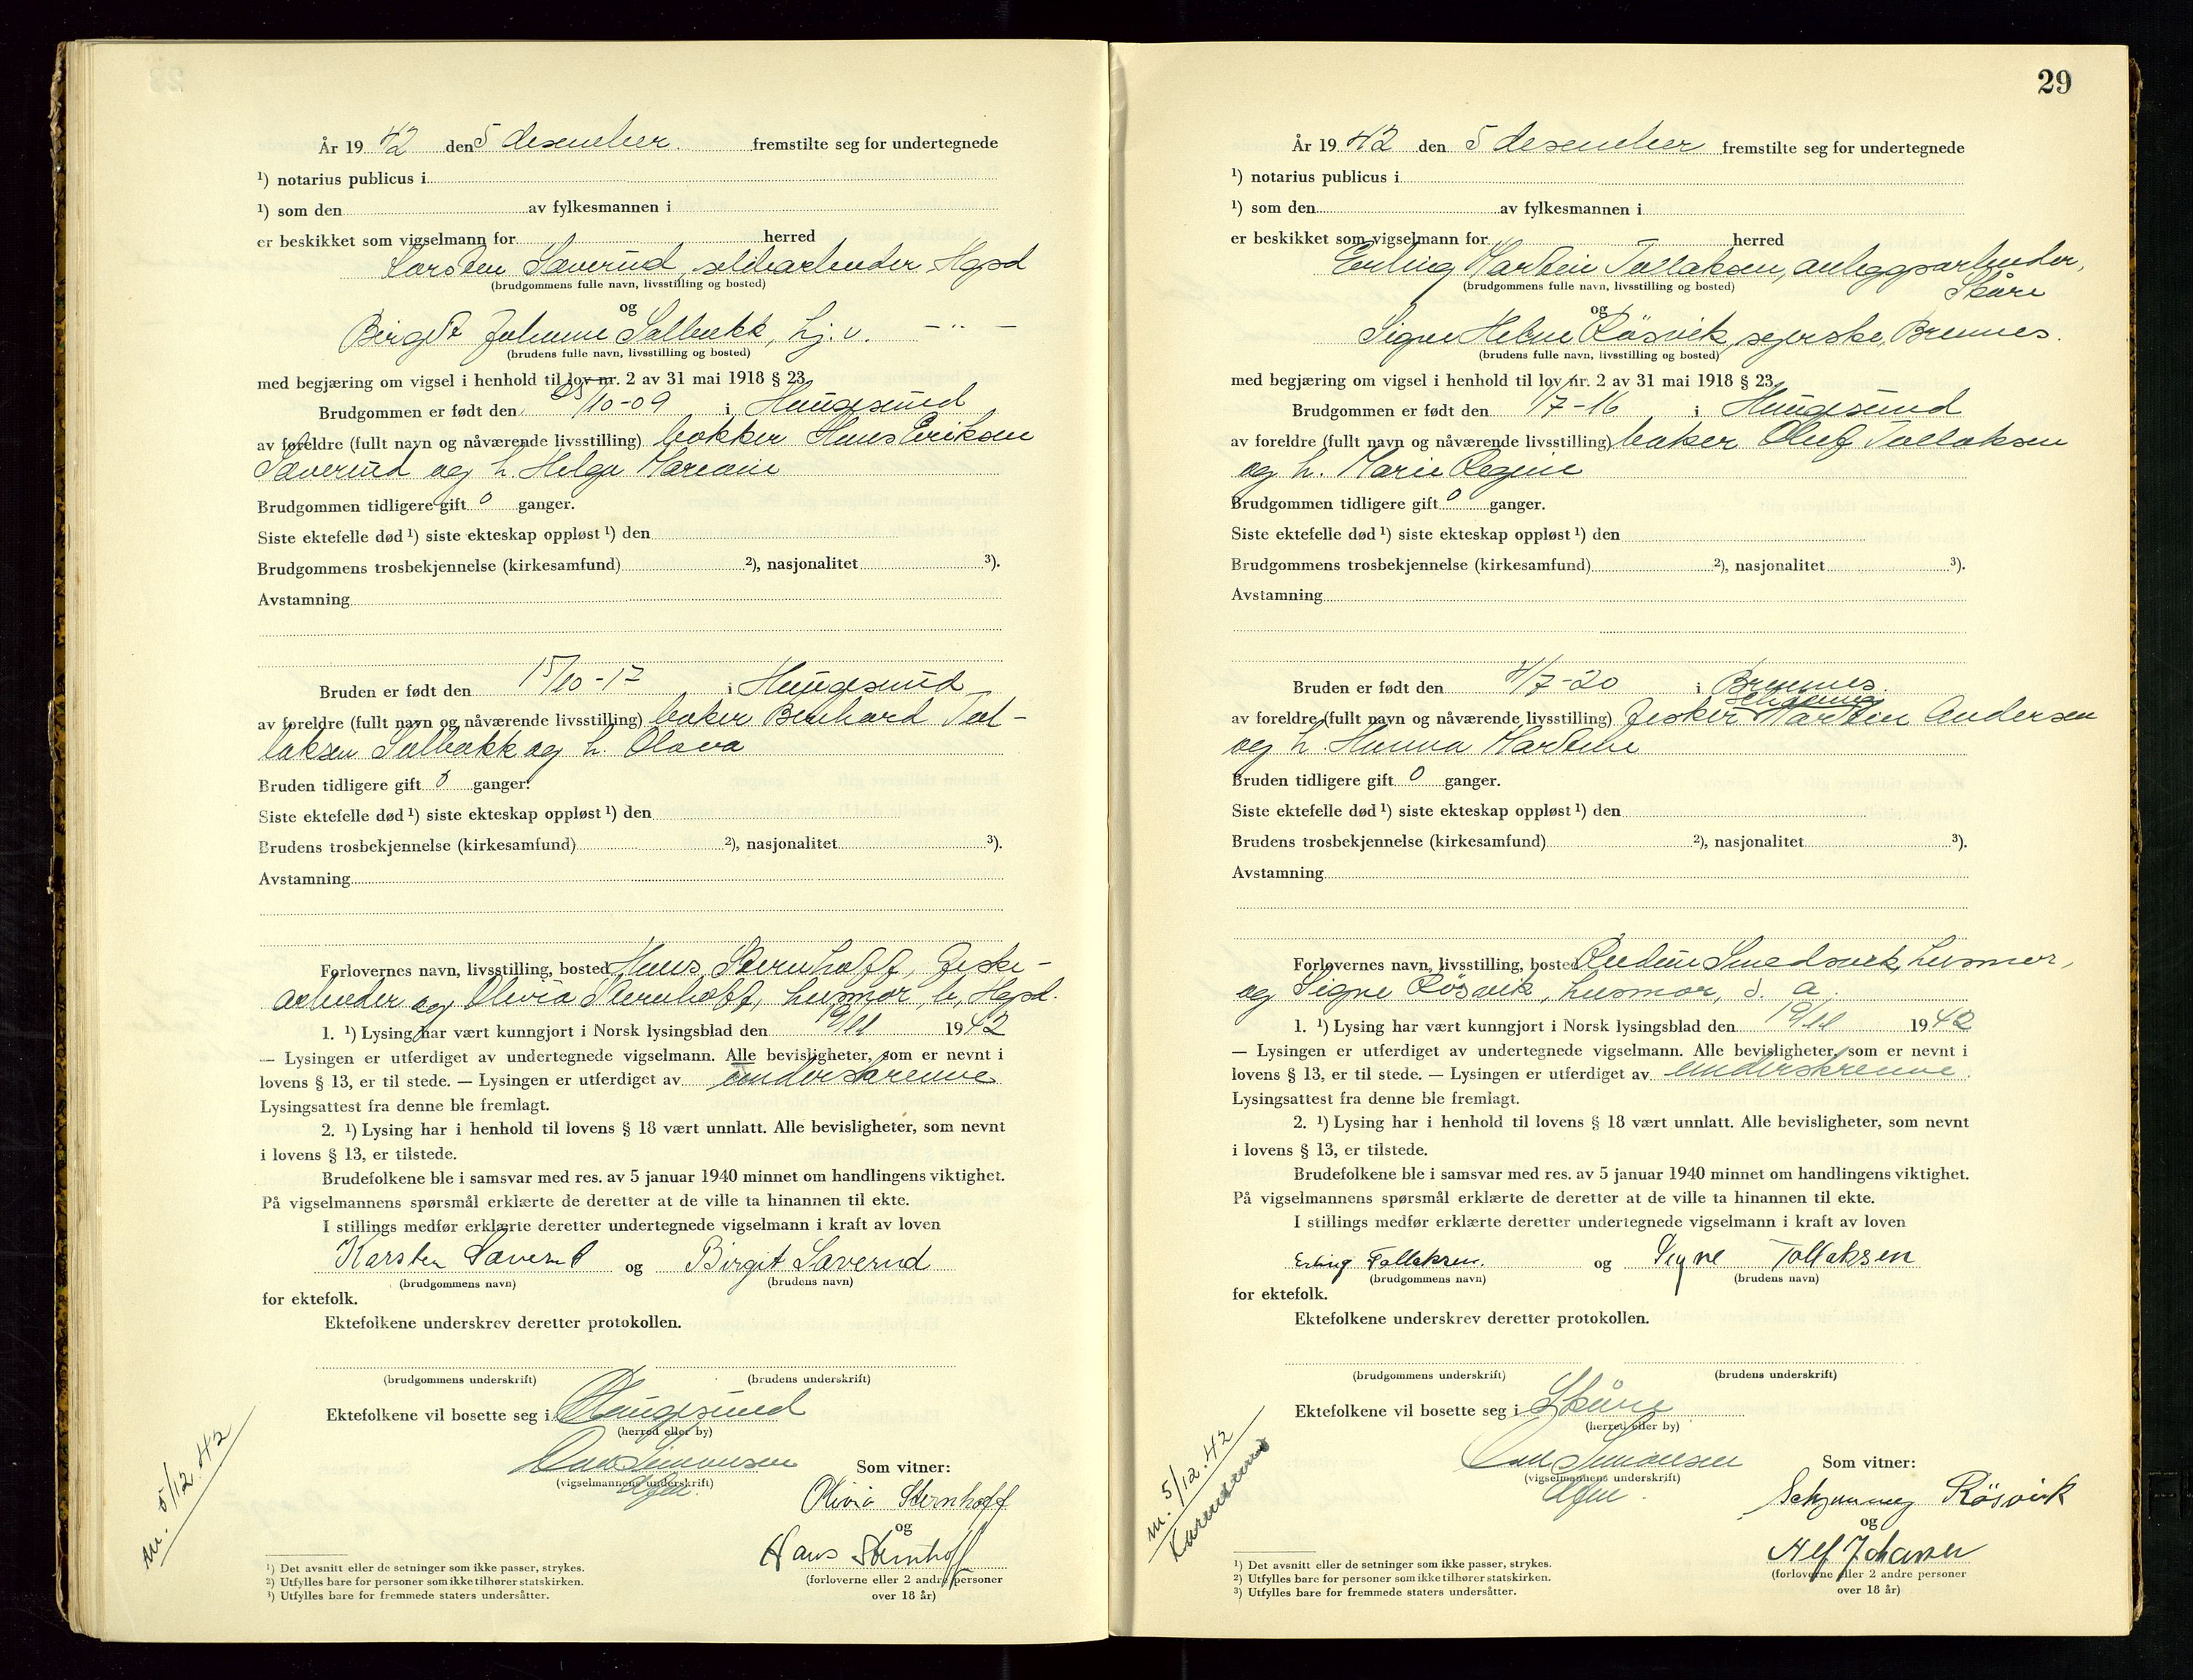 År 19 42 den 5 desember fremstilte seg for undertegnede
¹) notarius publicus i
¹) som den av fylkesmannen i
er beskikket som vigselmann for herred
Karsten Sæverud, sildearbeider Hgsd
(brudgommens fulle navn, livsstilling og bosted)
og
Birgit Johanne Solbakk, hj. v. — " —
(brudens fulle navn, livsstilling og bosted)
med begjæring om vigsel i henhold til lov nr. 2 av 31 mai 1918 § 23.
Brudgommen er født den /10-09 i Haugesund
av foreldre (fullt navn og nåværende livsstilling) bøkker Hans Eriksen
Sæverud og h. Helga Mareane
Brudgommen tidligere gift 0 ganger.
Siste ektefelle død ¹) siste ekteskap oppløst ¹) den
Brudgommens trosbekjennelse (kirkesamfund) ²), nasjonalitet ³).
Avstamning
Bruden er født den 15/10-17 i Haugesund
av foreldre (fullt navn og nåværende livsstilling) baker Bernhard Tol-
laksen Solbakk og h. Olava
Bruden tidligere gift 0 ganger.
Siste ektefelle død ¹) siste ekteskap oppløst ¹) den
Brudens trosbekjennelse (kirkesamfund) ²), nasjonalitet ³).
Avstamning
Forlovernes navn, livsstilling, bosted Hans Sternhoff, fiske-
arbeider og Olivia Sternhoff, husmor, b. Hgsd.
1. ¹) Lysing har vært kunngjort i Norsk lysingsblad den 19/11 19 42
— Lysingen er utferdiget av undertegnede vigselmann. Alle bevisligheter, som er nevnt i
lovens § 13, er til stede. — Lysingen er utferdiget av underskrevne
Lysingsattest fra denne ble fremlagt.
2. ¹) Lysing har i henhold til lovens § 18 vært unnlatt. Alle bevisligheter, som nevnt
i lovens § 13, er tilstede.
Brudefolkene ble i samsvar med res. av 5 januar 1940 minnet om handlingens viktighet.
På vigselmannens spørsmål erklærte de deretter at de ville ta hinannen til ekte.
I stillings medfør erklærte deretter undertegnede vigselmann i kraft av loven
Karsten Sæverud og Birgit Sæverud
(brudgommens navn) (brudens navn)
for ektefolk.
Ektefolkene underskrev deretter protokollen.
(brudgommens underskrift) (brudens underskrift)
Ektefolkene vil bosette seg i Haugesund
(herred eller by)
Simonsen
(vigselmannens underskrift)
Som vitner:
Olivia Sternhoff
og
Hans Sternhoff
(forloverne eller 2 andre personer
over 18 år)
m. 5/12.42
¹) Det avsnitt eller de setninger som ikke passer, strykes.
²) Utfylles bare for personer som ikke tilhører statskirken.
³) Utfylles bare for fremmede staters undersåtter.
29
År 19 42 den 5 desember fremstilte seg for undertegnede
¹) notarius publicus i
¹) som den av fylkesmannen i
er beskikket som vigselmann for herred
Erling Martin Tollaksen, anleggsarbeider,
Skåre
(brudgommens fulle navn, livsstilling og bosted)
og
Signe Helene Røsvik, syerske, Bremnes.
(brudens fulle navn, livsstilling og bosted)
med begjæring om vigsel i henhold til lov nr. 2 av 31 mai 1918 § 23.
Brudgommen er født den /7-16 i Haugesund
av foreldre (fullt navn og nåværende livsstilling) baker Oluf Tollaksen
og h. Marie Regine
Brudgommen tidligere gift 0 ganger.
Siste ektefelle død ¹) siste ekteskap oppløst ¹) den
Brudgommens trosbekjennelse (kirkesamfund) ²), nasjonalitet ³).
Avstamning
Bruden er født den 4/7-20 i Bremnes.
av foreldre (fullt navn og nåværende livsstilling) fisker Martin Andersen
og h. Hanna Martine
Bruden tidligere gift 0 ganger.
Siste ektefelle død ¹) siste ekteskap oppløst ¹) den
Brudens trosbekjennelse (kirkesamfund) ²), nasjonalitet ³).
Avstamning
Forlovernes navn, livsstilling, bosted Smedsvik, husmor,
og Signe Røsvik, husmor, s. a.
1. ¹) Lysing har vært kunngjort i Norsk lysingsblad den 19/11 19 42
— Lysingen er utferdiget av undertegnede vigselmann. Alle bevisligheter, som er nevnt i
lovens § 13, er til stede. — Lysingen er utferdiget av underskrevne.
Lysingsattest fra denne ble fremlagt.
2. ¹) Lysing har i henhold til lovens § 18 vært unnlatt. Alle bevisligheter, som nevnt
i lovens § 13, er tilstede.
Brudefolkene ble i samsvar med res. av 5 januar 1940 minnet om handlingens viktighet.
På vigselmannens spørsmål erklærte de deretter at de ville ta hinannen til ekte.
I stillings medfør erklærte deretter undertegnede vigselmann i kraft av loven
Erling Tollaksen. og Signe Tollaksen
(brudgommens navn) (brudens navn)
for ektefolk.
Ektefolkene underskrev deretter protokollen.
(brudgommens underskrift) (brudens underskrift)
Ektefolkene vil bosette seg i Skåre
(herred eller by)
Simonsen
(vigselmannens underskrift)
Som vitner:
Røsvik
og
Alf Johansen
(forloverne eller 2 andre personer
over 18 år)
m. 5/12.42
¹) Det avsnitt eller de setninger som ikke passer, strykes.
²) Utfylles bare for personer som ikke tilhører statskirken.
³) Utfylles bare for fremmede staters undersåtter.